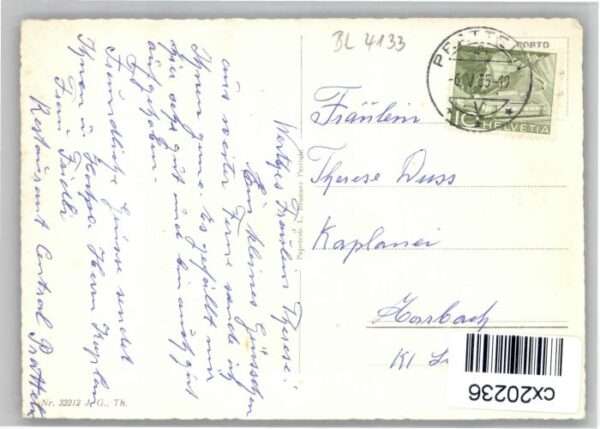 BL 4133
PORTO
PRATTELN
HELVETIA
10
Fräulein
Therese Duss
Kaplanei
Horbach
Kt
Wertes Fräulein Therese!
Ein kleines Grüsschen
aus weiter Ferne sende ich
Ihnen gerne. Es gefällt mir
hier sehr gut und bin auch gut
aufgehoben.
Freundliche Grüsse sendet
Ihnen u. Herrn Kaplan
Frieda
Restaurant Central Pratteln
Nr. 22212 J. G., Th.
cx20236